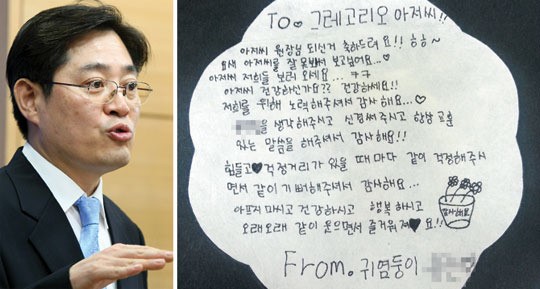 To♥ 그레고리오 아저씨!!
아저씨 원장님 되신거 축하드려요!! ㅎㅎ~
요새 아저씨를 잘 못봐서 보고싶어요...♡
아저씨 저희들 보러 오세요... ㅋㅋ
아저씨 건강하신가요?? 건강하세요!!
저희를 위해 노력해주셔서 감사해요...♡
을 생각해주시고 신경써주시고 항상 교훈
있는 말씀을 해주셔서 감사해요!!
힘들고♥ 걱정거리가 있을 때마다 같이 걱정해주시
면서 같이 기뻐해주셔서 감사해요...
아프지 마시고 건강하시고 행복하시고
오래오래 같이 웃으면서 즐거워져♥요!!
감사해요
From. 귀염둥이